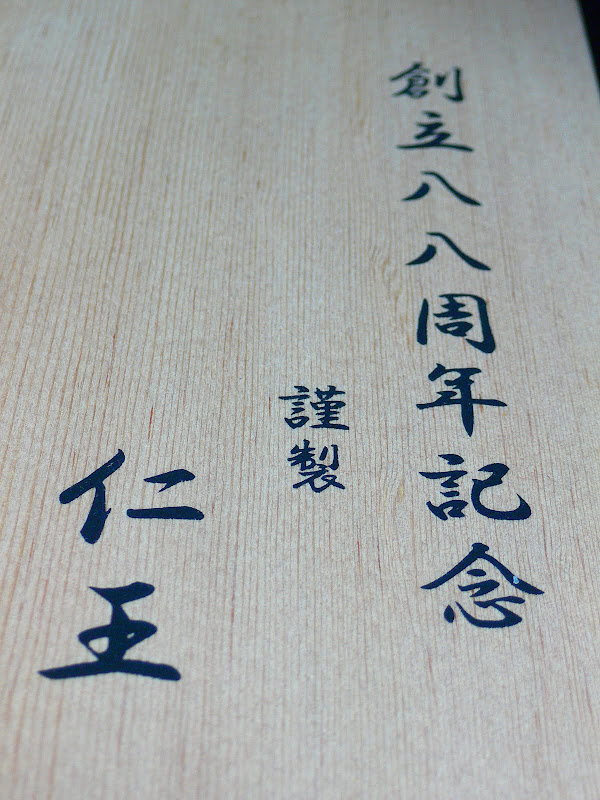 創立八八周年記念
謹製
仁王